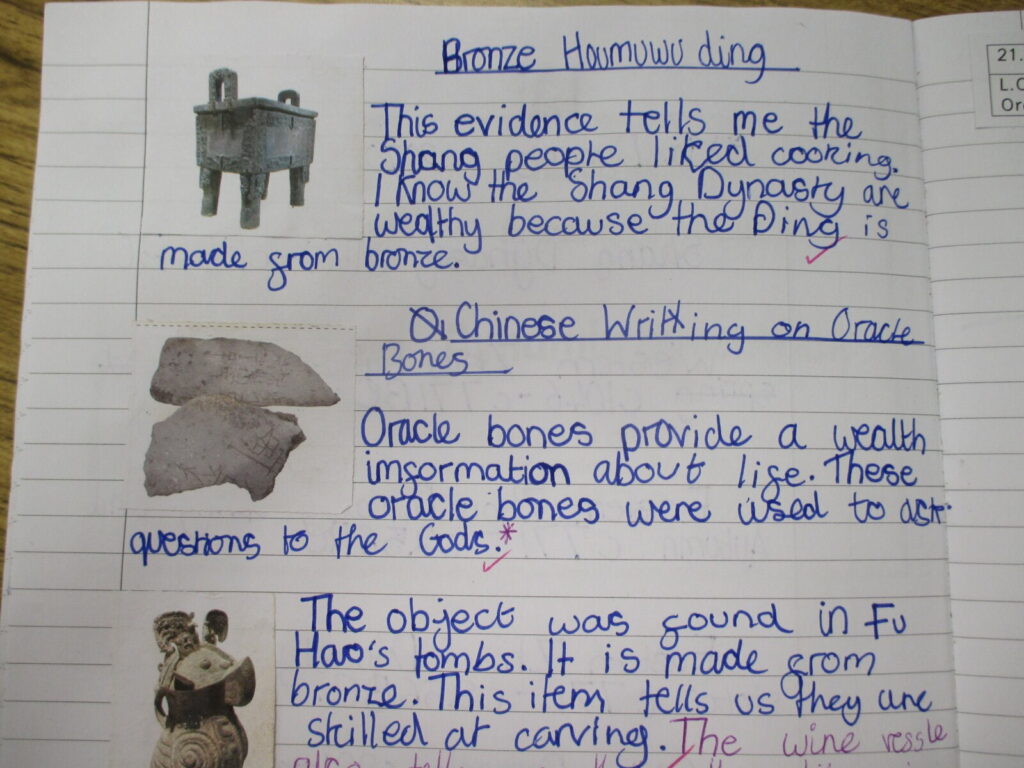 Bronze Houmuwu ding
This evidence tells me the
Shang people liked cooking.
I know the Shang Dynasty are
wealthy because the Ding is
made from bronze.
Chinese Writing on Oracle
Bones
Oracle bones provide a wealth
information about life. These
oracle bones were used to ask
questions to the Gods.*
The object was found in Fu
Hao's tombs. It is made from
bronze. This item tells us they are
skilled at carving. The wine vessle
21.
L.O
Ora